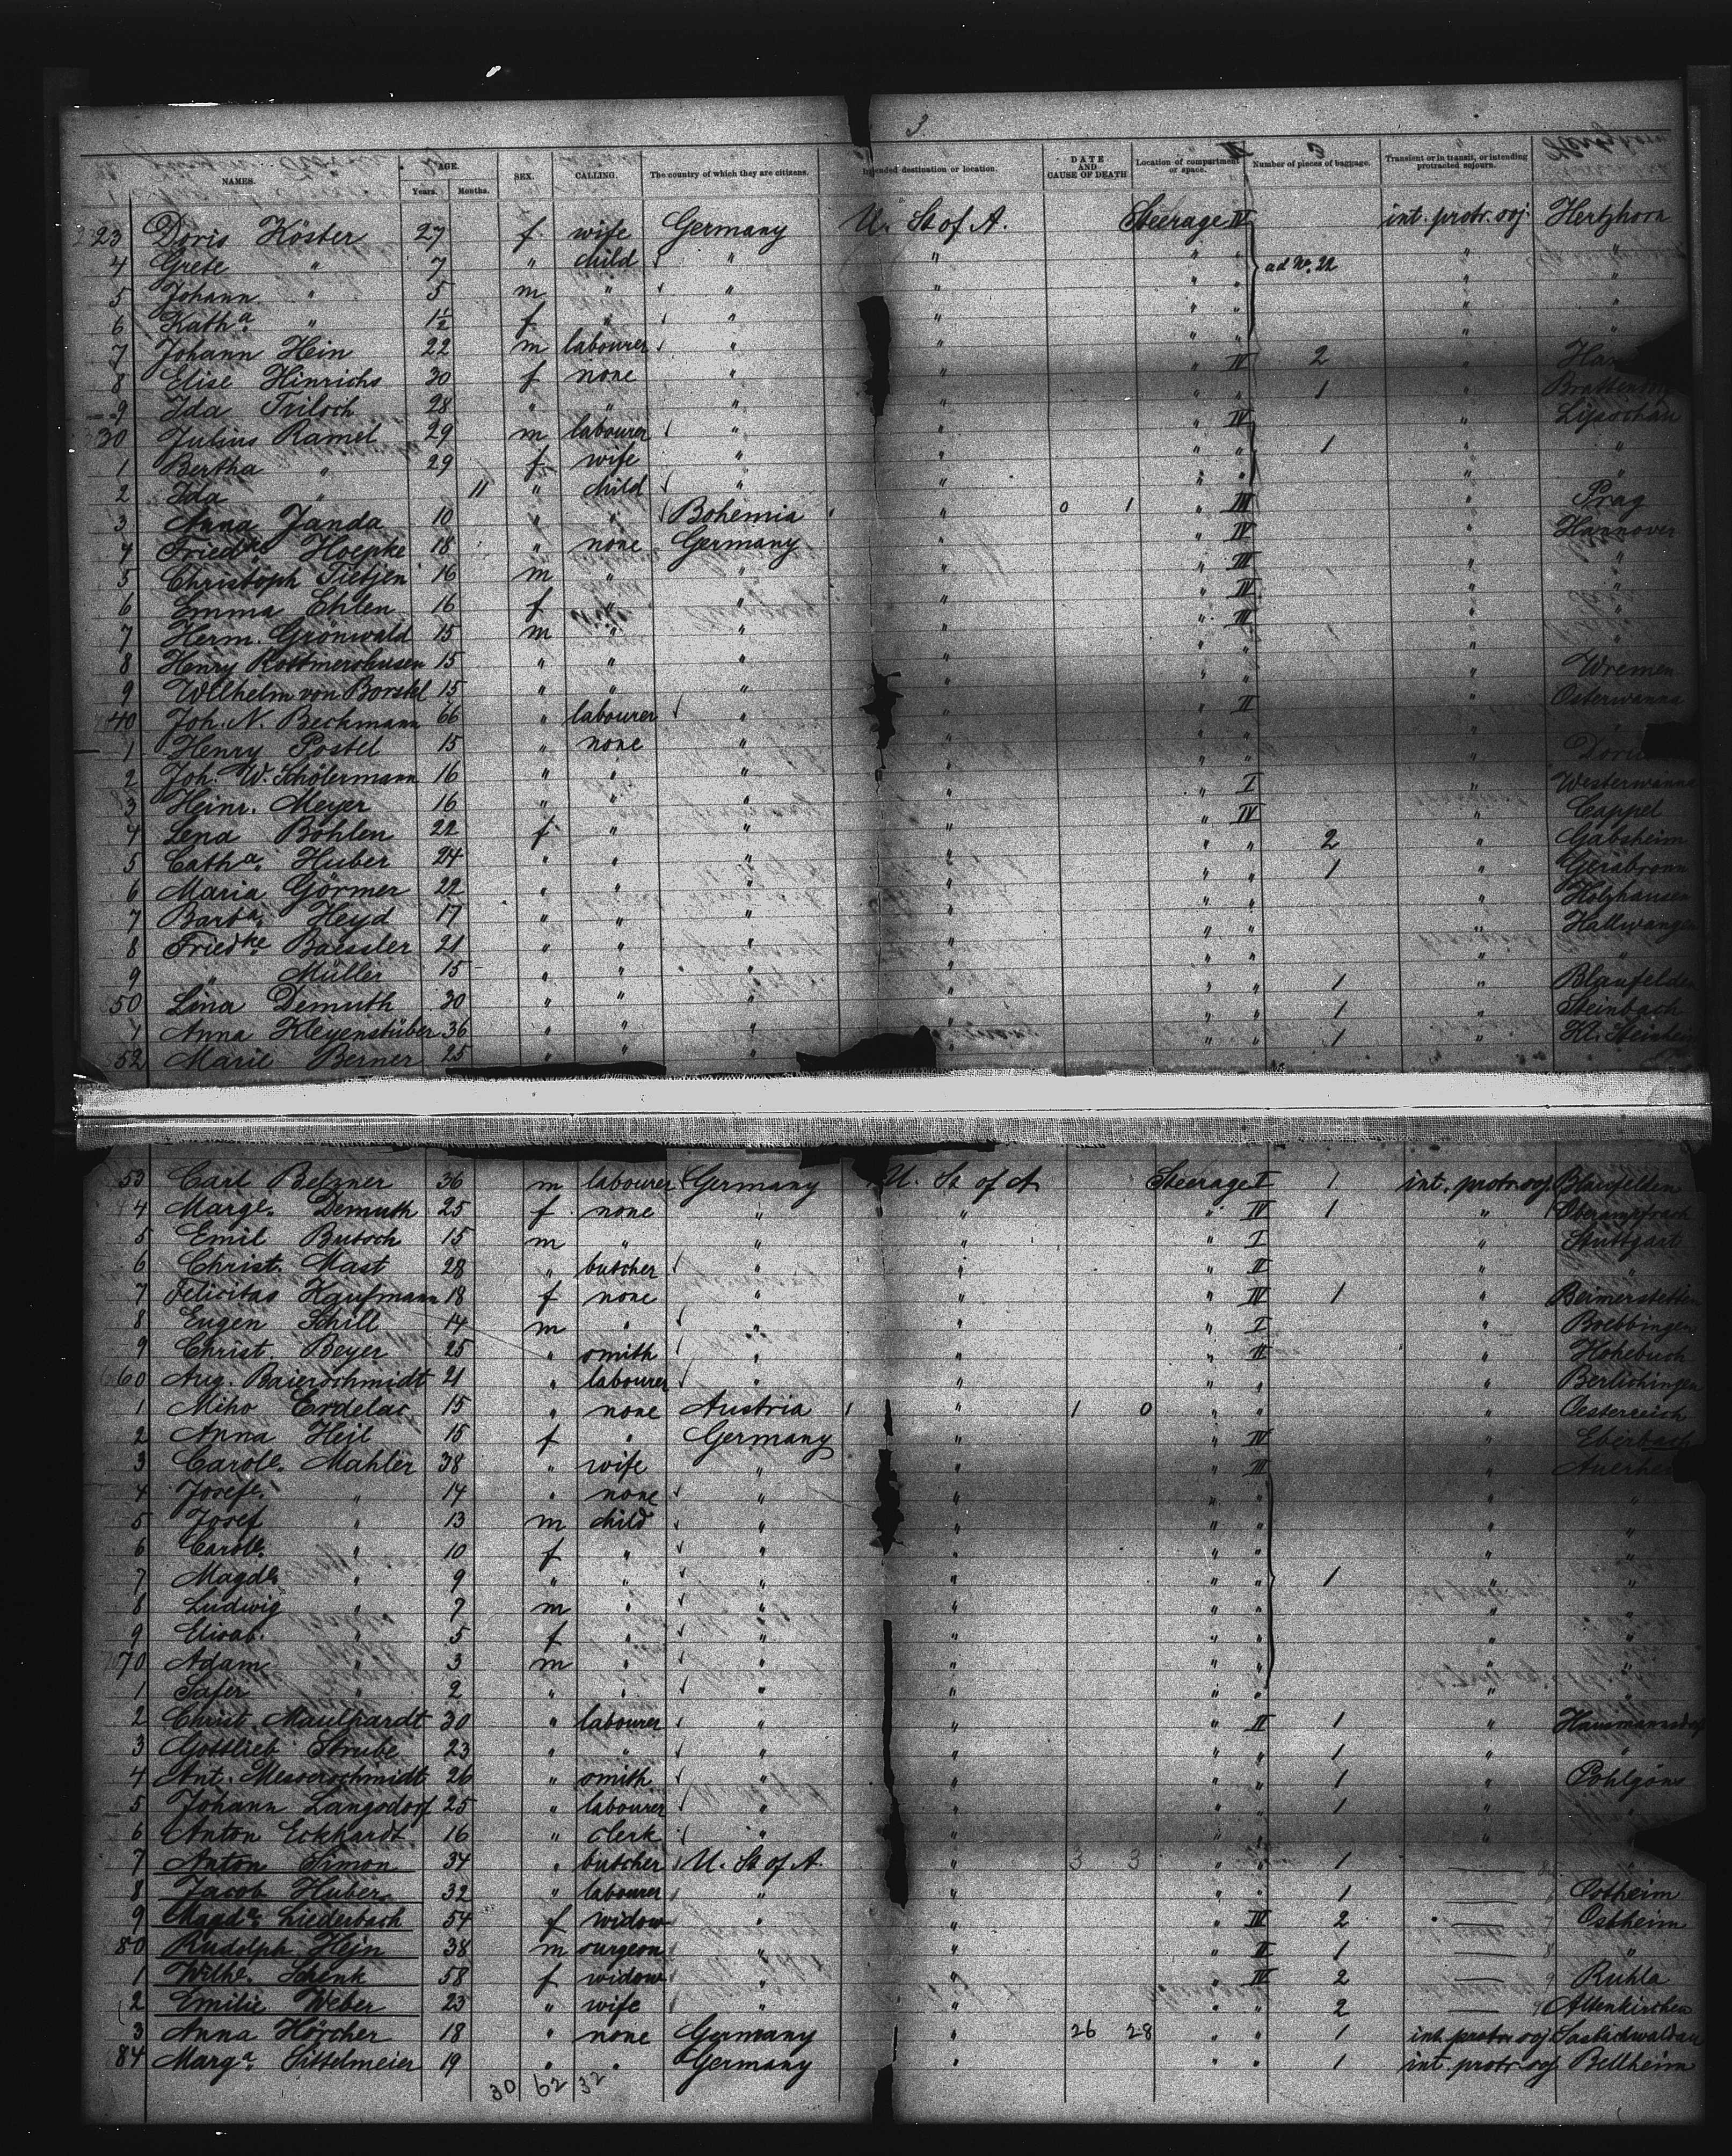 3.
NAMES. AGE. Years. Months. SEX. CALLING. The country of which they are citizens. Intended destination or location. DATE AND CAUSE OF DEATH Location of compartment or space. Number of pieces of baggage. Transient or in transit, or intending protracted sojourn.
23 Doris Köster 27 f wife Germany U. St of A. Steerage IV int. protr. soj. Hertzhorn
4 Grete " 7 " child " " " " ad No. 22 " "
5 Johann " 5 m " " " " " " "
6 Katha. " 1½ f " " " " " " "
7 Johann Hein 22 m labourer " " " " " "
8 Elise Hinrichs 30 f none " " " IV 2 "
9 Ida Triloch 28 " " " " " " 1 "
30 Julius Ramel 29 m labourer " " " IV " Lipschau
1 Bertha " 29 f wife " " " " 1 " "
2 Ida " 11 " child " " " " " "
3 Anna Janda 10 " " Bohemia " 0 1 " III " Prag
4 Friedke Hoepke 18 " none Germany " " IV " Hannover
5 Christoph Tietjen 16 m " " " " III " "
6 Emma Ehlen 16 f " " " " IV " "
7 Herm. Grönwald 15 m " " " " III " "
8 Henry Rottmershusen 15 " " " " " " " "
9 Wilhelm von Borstel 15 " " " " " " " Wremen
40 Joh. N. Beckmann 66 " labourer " " " II " Osterwanna
1 Henry Postel 15 " none " " " " " "
2 Joh. W. Schölermann 16 " " " " " " "
3 Heinr. Meyer 16 " " " " " I " Westerwanna
4 Lena Böhlen 22 f " " " " IV " Cappel
5 Catha. Huber 24 " " " " " " 2 " Gabsheim
6 Maria Görmer 22 " " " " " " 1 " Gerabronn
7 Barba. Heyd 17 " " " " " " " Holzhausen
8 Friedke Baessler 21 " " " " " " " Hallwangen
9 " Müller 15 " " " " " " " "
50 Lina Demuth 30 " " " " " " 1 " Blaufelden
1 Anna Kleyenstüber 36 " " " " " " 1 " Steinbach
52 Marie Berner 25 " " " " " " 1 "
53 Carl Belzner 36 m labourer Germany U. St of A Steerage I 1 int. protr. soj. Blaufelden
4 Marge. Demuth 25 f none " " " IV 1 " Oberampfrach
5 Emil Butsch 15 m " " " " I " Stuttgart
6 Christ. Mast 28 " butcher " " " II " "
7 Felicitas Kaufmann 18 f none " " " IV 1 " Beimerstetten
8 Eugen Schill 14 m " " " " I " Boebbingen
9 Christ. Beyer 25 " smith " " " II " Hohebuch
60 Aug. Baierschmidt 21 " labourer " " " " " Berlichingen
1 Miho Erdelac 15 " none Austria " 1 0 " " " Oesterreich
2 Anna Heil 15 f " Germany " " IV " Eberbach
3 Carole. Mahler 38 " wife " " " III "
4 Josefe. " 14 " none " " " " " "
5 Josef " 13 m child " " " " " "
6 Carole. " 10 f " " " " " " "
7 Magde. " 9 " " " " " " 1 " "
8 Ludwig " 7 m " " " " " " "
9 Elisab. " 5 f " " " " " " "
70 Adam " 3 m " " " " " " "
1 Safer " 2 " " " " " " " "
2 Christ. Maulhardt 30 " labourer " " " II 1 "
3 Gottlieb Strube 23 " " " " " " 1 " "
4 Ant. Messerschmidt 26 " smith " " " " 1 " Pohlgöns
5 Johann Langsdorf 25 " labourer " " " " 1 " "
6 Anton Eckhardt 16 " clerk " " " " "
7 Anton Simon 34 " butcher U. St of A. " 3 3 " " 1
8 Jacob Huber 32 " labourer " " " " 1 Ostheim
9 Magda. Liederbach 54 f widow " " " IV 2 7 Ostheim
80 Rudolph Hejn 38 m surgeon " " " II 1 8 "
1 Wilhe. Schenk 58 f widow " " " IV 2 9 Ruhla
2 Emilie Weber 23 " wife " " " " 2 Altenkirchen
3 Anna Hörcher 18 " none Germany " 26 28 " " 1 int. protr. soj. Sasbachwalden
84 Marga. Sittelmeier 19 " " Germany " " " 1 int. protr. soj. Bellheim
30 62 32